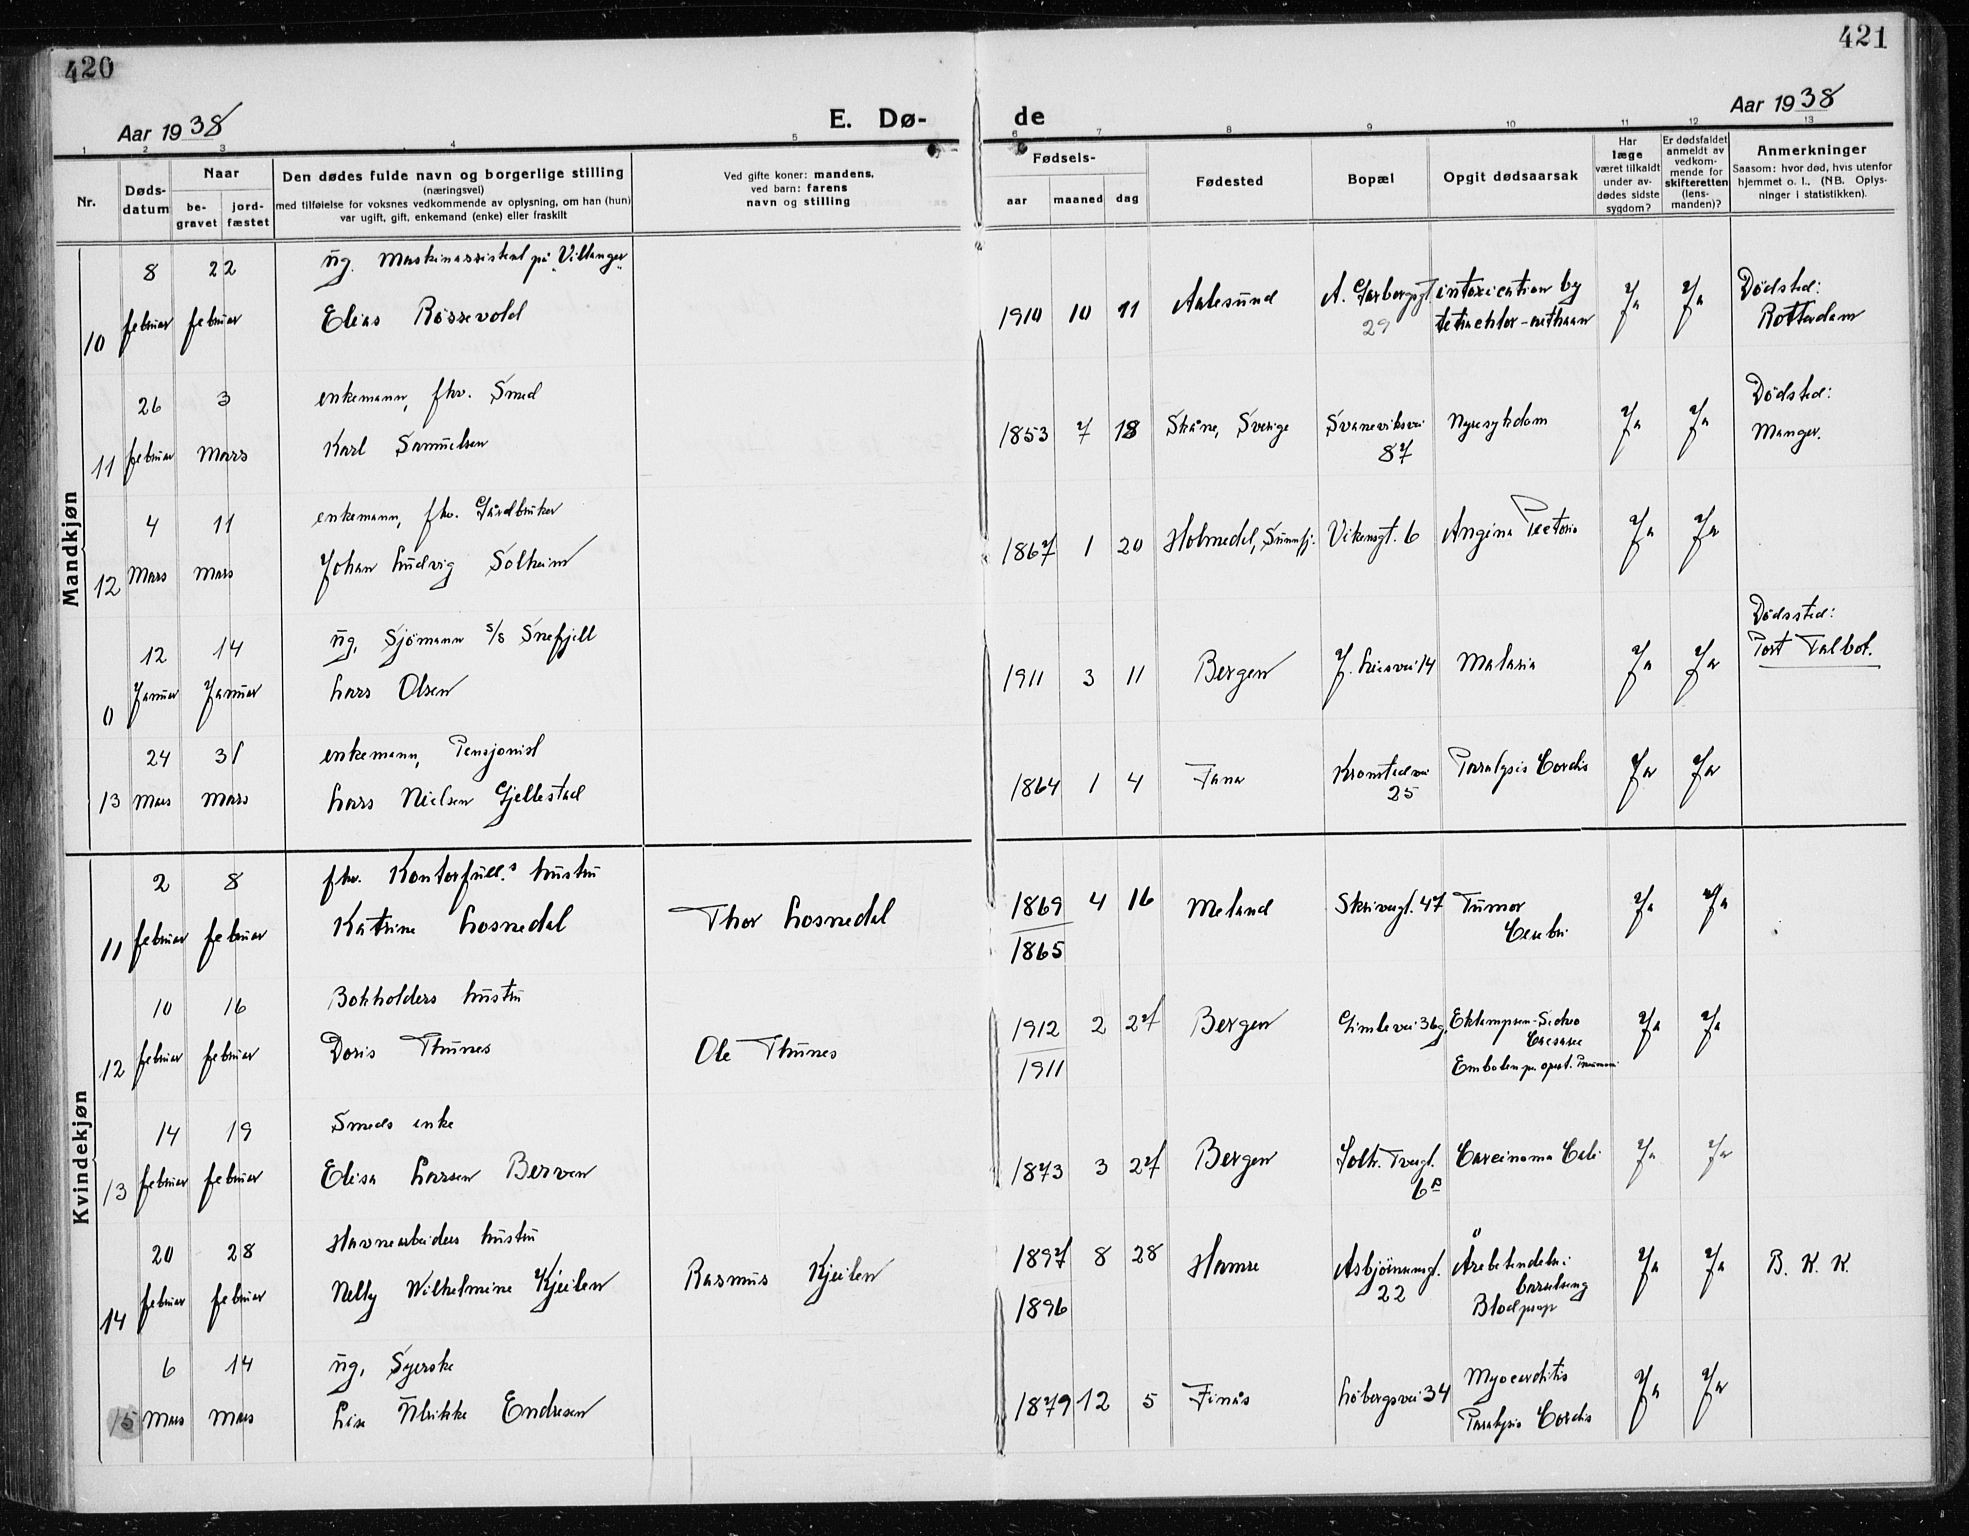 420
421
Aar 1938
E. Dø-
de
Aar 1938
1 2 3 4 5 6 7 8 9 10 11 12 13
Nr.
Døds-
datum
Naar
be-
gravet
jord-
fæstet
Den dødes fulde navn og borgerlige stilling
(næringsvei)
med tilføielse for voksnes vedkommende av oplysning, om han (hun)
var ugift, gift, enkemand (enke) eller fraskilt
Ved gifte koner: mandens,
ved barn: farens
navn og stilling
Fødsels-
aar
maaned
dag
Fødested
Bopæl
Opgit dødsaarsak
Har
læge
været tilkaldt
under av-
dødes sidste
sygdom?
Er dødsfaldet
anmeldt av
vedkom-
mende for
skifteretten
(lens-
manden)?
Anmerkninger
Saasom: hvor død, hvis utenfor
hjemmet o. l.. (NB. Oplys-
ninger i statistikken).
Mandkjøn
10
8 februar
22 februar
ug. Maskinassistent på "Villanger"
Elias Røssevold
1910 10 11
Aalesund
A. Garborgsgt.
29
intoxication by
tetrachlor-methaan
Ja Ja
Dødsted:
Rotterdam
11
26 februar
3 Mars
enkemann, fhv. Smed
Karl Samuelsen
1853 7 18
Skåne, Sverige
Svaneviksvei
87
Nyresykdom
Ja Ja
Dødsted:
Manger.
12
4 Mars
11 Mars
enkemann, fhv. Gårdbruker
Johan Ludvig Solheim
1867 1 20
Holmedal, Sunnfj.
Vikensgt. 6
Angina Pectoris
Ja Ja
0
12 Januar
14 Januar
ug. Sjømann s/s Snefjell
Lars Olsen
1911 3 11
Bergen
J. Liesvei 14
Malaria
Ja Ja
Dødssted:
Port Talbot.
13
24 Mars
31 Mars
enkemann, Pensjonist
Lars Nielsen Gjellestad
1864 1 4
Fana
Kronstadvei
25
Paralysis Cordis
Ja Ja
Kvindekjøn
11
2 februar
8 februar
fhv. Kontorfull.s hustru
Katrine Losnedal
Thor Losnedal
1869 4 16
1865
Meland
Skivergt. 47
Tumor
Cerebri
Ja Ja
12
10 februar
16 februar
Bokholders hustru
Doris Thunes
Ole Thunes
1912 2 27
1911
Bergen
Gimlevei 36g.
Eklampsi-Sectio
Caesarea
Emboli
Ja Ja
13
14 februar
19 februar
Smeds enke
Elisa Larsen Berven
1873 3 27
Bergen
Solh. Tvergt.
6B
Carcinoma Coli
Ja Ja
14
20 februar
28 februar
Havnearbeiders hustru
Nelly Wilhelmine Kjeilen
Rasmus Kjeilen
1897 8 28
1896
Hamre
Asbjørnsensgt.
22
Årebetendelse i
barselseng
Blodpropp
Ja Ja
B. K. K.
15
6 Mars
14 Mars
ug, Syerske
Lise Ulrikke Endresen
1879 12 5
Finås
Løbergsvei 34
Myocarditis
Paralysis Cordis
Ja Ja